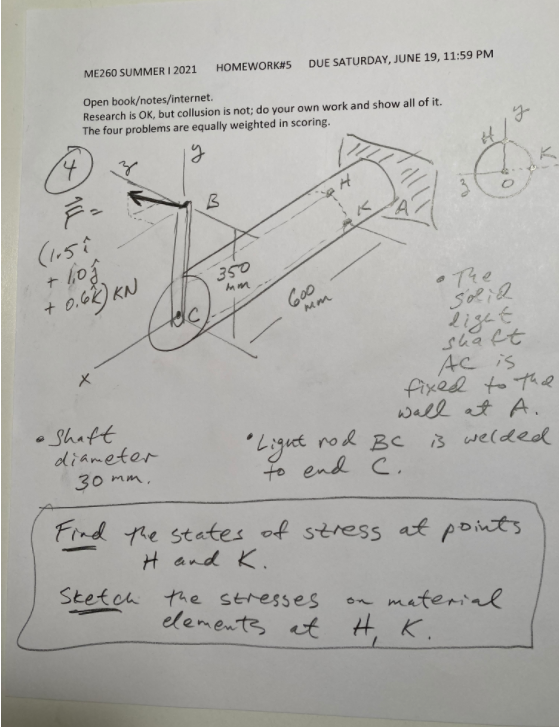 ME260 SUMMER I 2021 HOMEWORK#5 DUE SATURDAY, JUNE 19, 11:59 PM
Open book/notes/internet.
Research is OK, but collusion is not; do your own work and show all of it.
The four problems are equally weighted in scoring.
4
y
H
K
z
O
z
y
B
F =
(1.5 i
+ 1.0 j
+ 0.6 k) KN
H
K
A
350
mm
600
mm
C
x
• The
solid
light
shaft
AC is
fixed to the
wall at A.
• Shaft
diameter
30 mm.
• Light rod BC is welded
to end C.
Find the states of stress at points
H and K.
Sketch the stresses on material
elements at H, K.